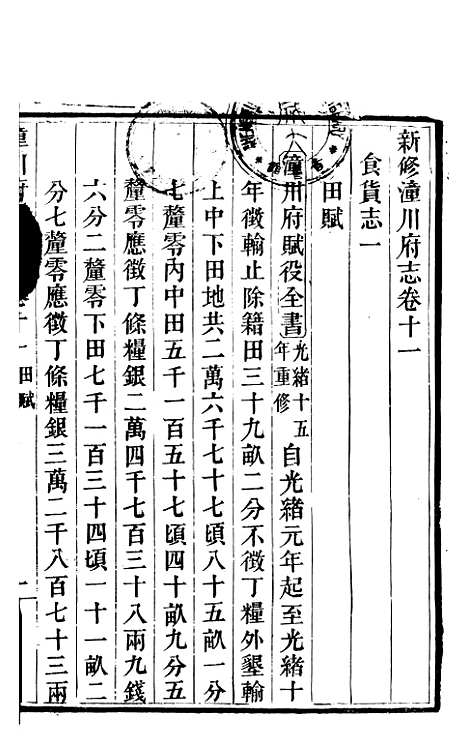 新修潼川府志卷十一
食貨志一
田賦
潼川府賦役全書光緒十五年重修自光緒元年起至光緒十
年徵輸止除籍田三十九畝二分不徵丁糧外墾輸
上中下田地共二萬六千七十七頃八十五畝一分
七釐零內中田五千一百五十七頃四十畝九分五
釐零應徵丁條糧銀二萬四千七百三十八兩九錢
六分二釐零下田七千一百三十四頃一十一畝二
分七釐零應徵丁條糧銀三萬二千八百七十三兩
潼川府
十一 田賦
一